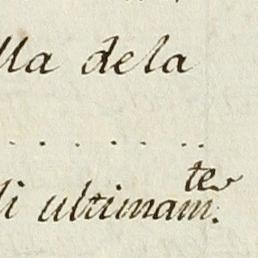 lla dela
. . . . . .
li ultimam.ter